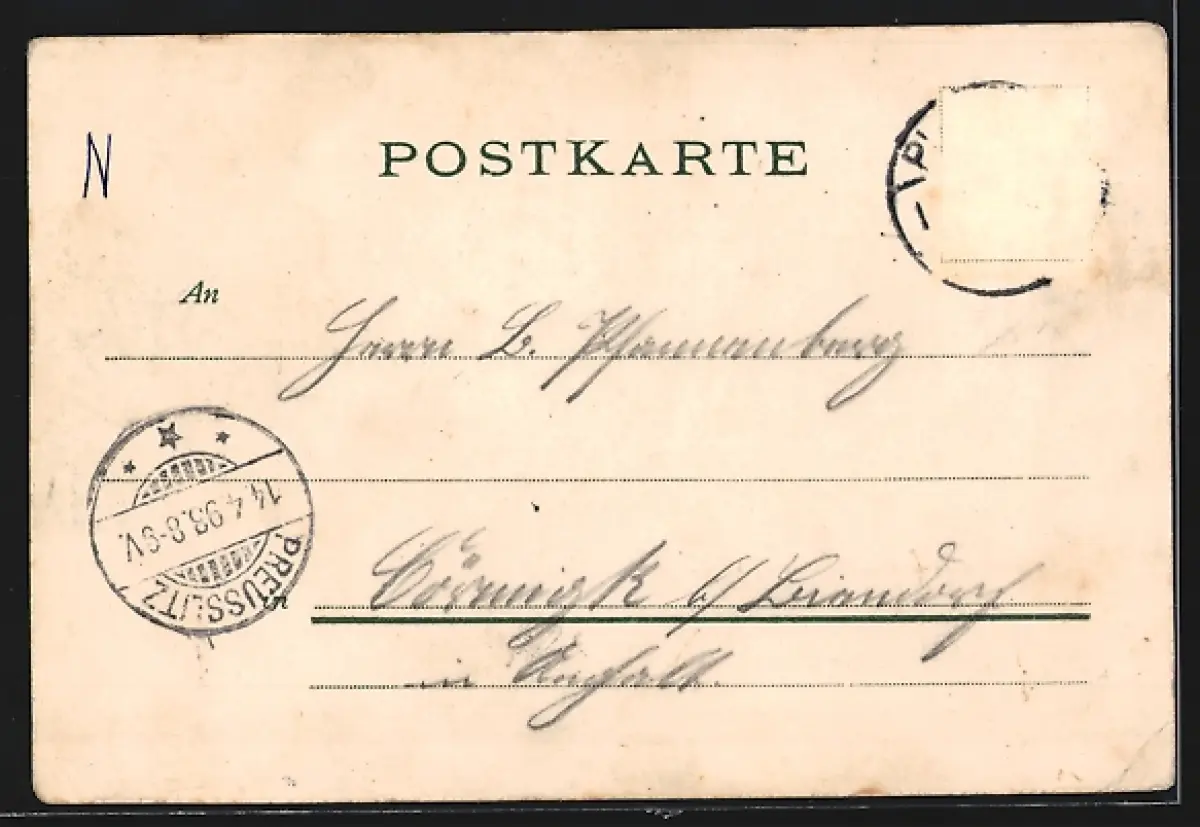 N
POSTKARTE
An
Herrn B. Pfannenberg
14.4.98.8-9V.
PREUSSLITZ
in
Cörmigk b/ Biendorf
in Anhalt.